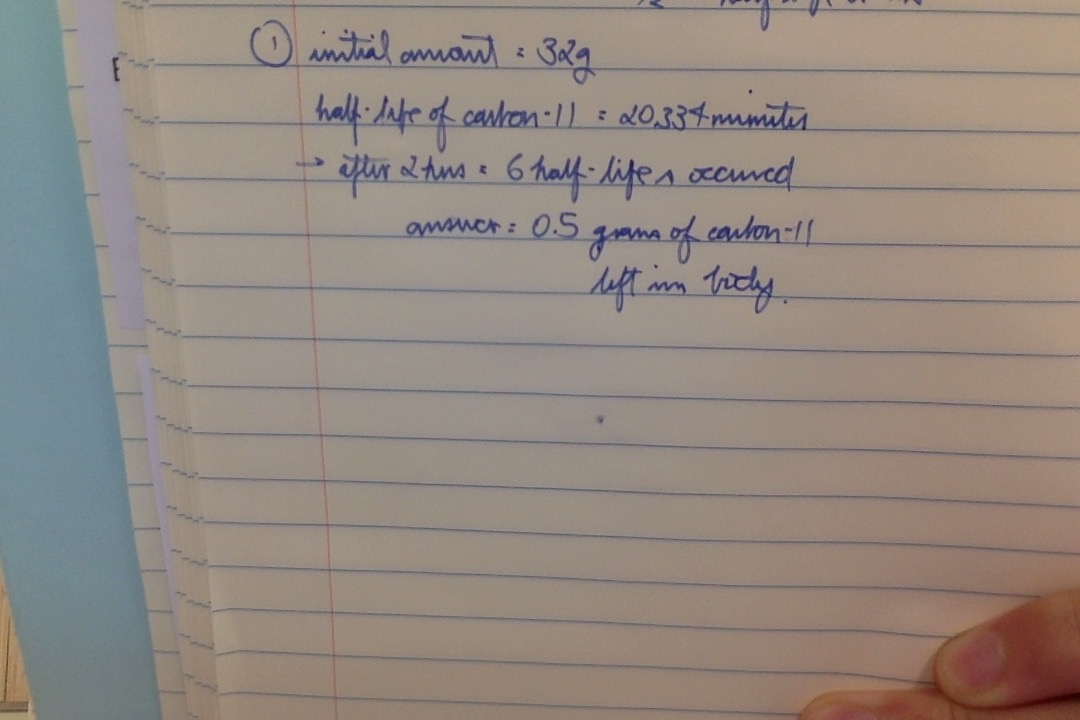 ① initial amount = 32g
half-life of carbon-11 = 20.334 minutes
→ after 2 hrs = 6 half-lifes occured
answer = 0.5 grams of carbon-11
left in body.
E